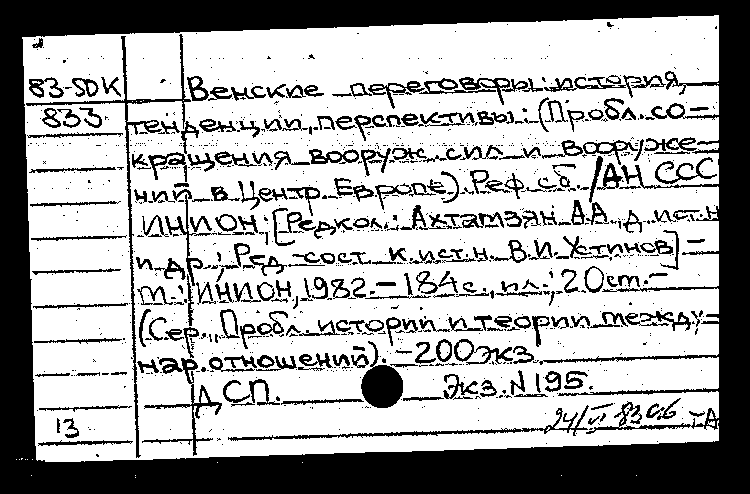 83-5DK Венские переговоры: история,
833 тенденции, перспективы: (Пробл. со-
кращения вооруж. сил и вооруже-
ний в Центр. Европе). Реф. сб. /АН ССС
ИНИОН; [Редкол.: Ахтамзян А.А., д. ист. н
и др.; Ред.-сост. к. ист. н. В.И. Устинов] -
т.: ИНИОН, 1982. - 184 с., ил.; 20 см. -
(Сер. „Пробл. истории и теории между-
нар. отношений). - 200 экз.
ДСП. Экз. N 195.
13 24/VI 83 -А